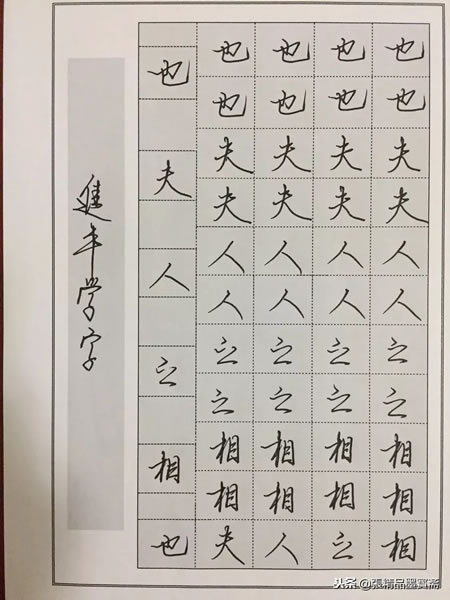 也 也 也 也 也
也 也 也 也
夫 夫 夫 夫 夫
夫 夫 夫 夫
人 人 人 人 人
人 人 人 人
之 之 之 之 之
之 之 之 之
相 相 相 相 相
相 相 相 相
也 夫 人 之 相
学字
头条 @張精品墨寶斋